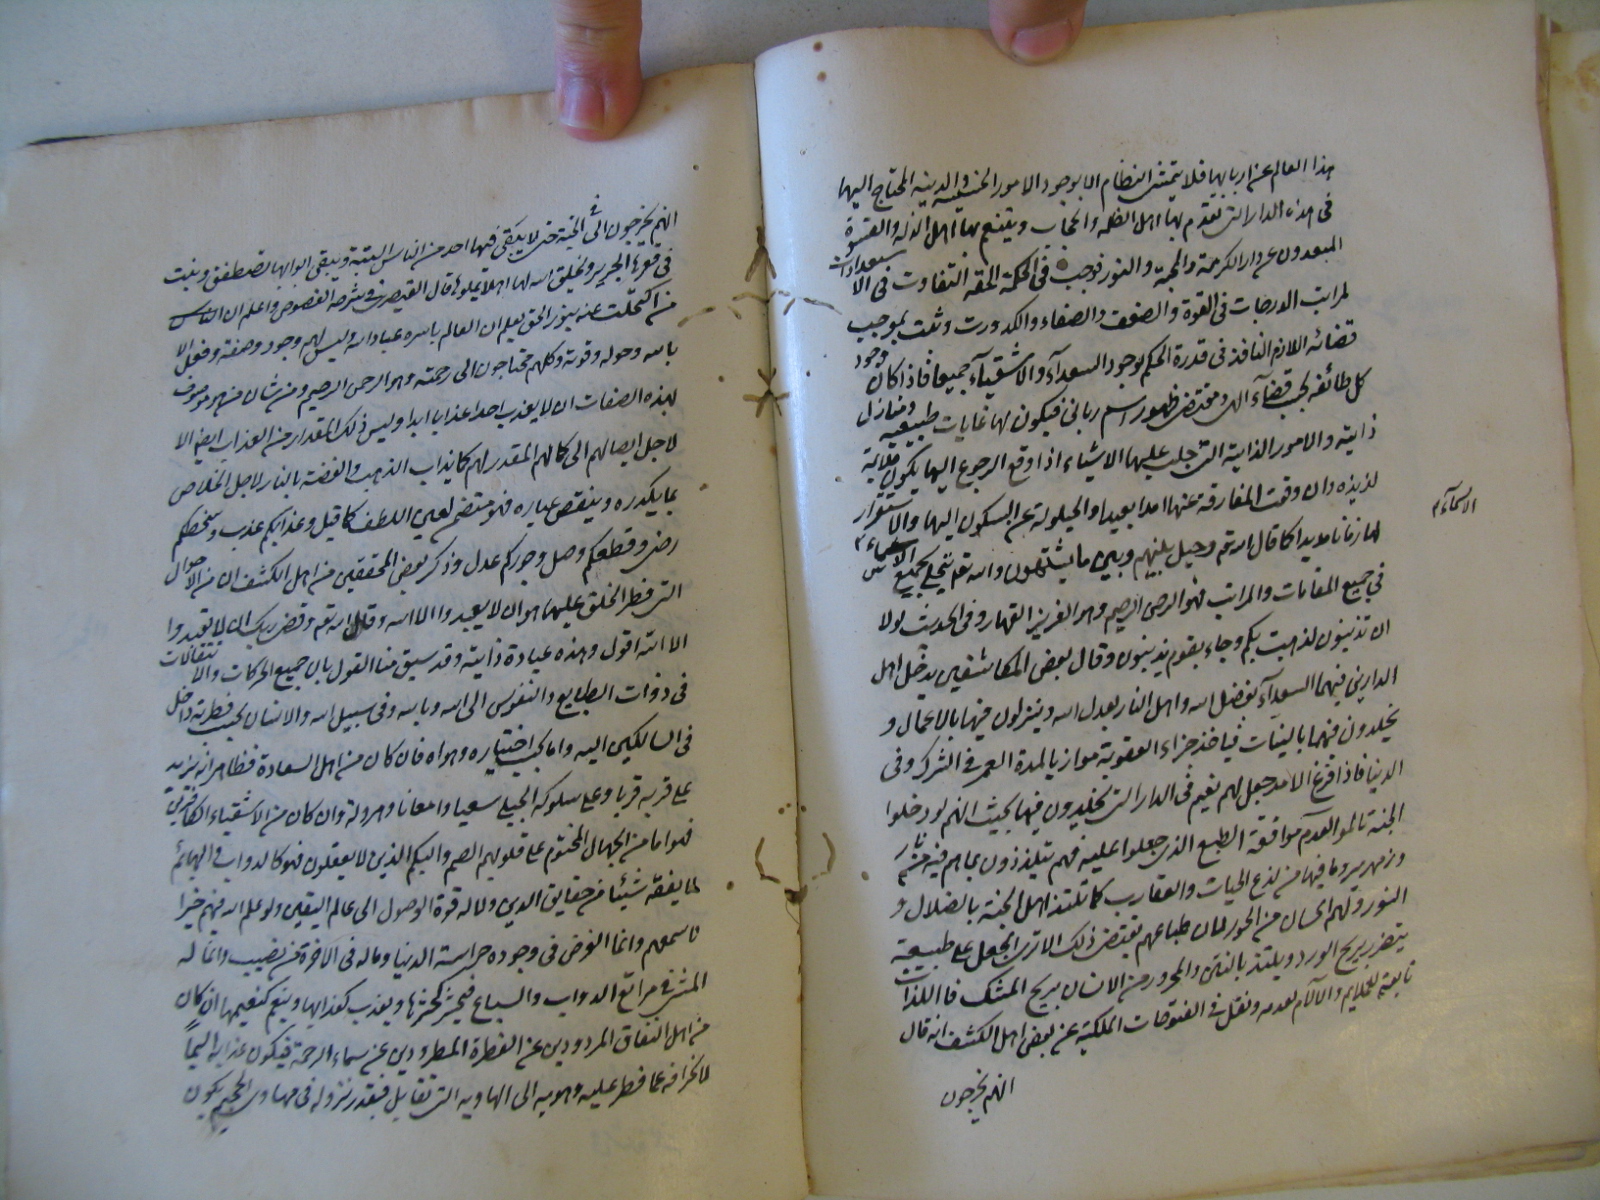 هذا العالم عن اربابها فلا يتمشى النظام الا بوجود الامور الخسيسة والدينه المحتاج اليها
فى هذه الدار التى تقوم بها اهل الظلمه والحجاب ويتنعم بها اهل الذله والقسوة
المبعدون عن دار الكرامة والمحبة والنور فوجب فى الحكمة الحقه التفاوت فى الاستعدادات
لمراتب الدرجات فى القوة والضعف والصفاء والكدورت وثبت بموجب
قضائه اللازم النافذ فى قدرة الحكم بوجود السعدآء والاشقيآء جميعا فاذا كان وجود
كل طائفه بحسب قضآء الهى ومقتضى ظهور اسم ربانى فيكون لها غايات طبيعيه ومنازل
ذاتية والامور الذاتية التى جبلت عليها الاشياء اذا وقع الرجوع اليها يكون ملائمة
لذيذه وان وقعت المفارقة عنها امدا بعيدا والحيلولة عن السكون اليها والاستقرار
لها زمانا مديدا كما قال الله تعم وحيل بينهم وبين ما يشتهون والله تعم يتجلى بجميع الاسماء
فى جميع المقامات والمراتب فهو الرحمن الرحيم وهو العزيز القهار وفى الحديث لولا
ان تذنبون لذهبت بكم وجاء بقوم يذنبون وقال بعض المكاشفين يدخل اهل
الدارين فيهما السعدآء بفضل الله واهل النار بعدل الله وينزلون فيها بالاعمال و
يخلدون فيهما بالنيات فياخذ جزاء العقوبة موازيا لمدة العمر فى الشرك وفى
الدنيا فاذا فرغ الامد جعل لهم نعيم فى الدار التى يخلدون فيها بحيث انهم لو دخلوا
الجنة تالموا لعدم موافقة الطبع الذى جعلوا عليه فهم يتلذذون بما هم فيه من نار
وزمهرير وما فيها من لذع الحيات والعقارب كما تلتذ اهل الجنة بالضلال و
النور ولثم الحسان من الحور لان طباعهم تقتضى ذلك الا ترى الجعل على طبيعة
يتضرر بريح الورد ويلتذ بالنتن والمحرور من الانسان بريح المسك فاللذات
تابعة للملايم والالام لعدمه ونقل فى الفتوحات المكية عن بعض اهل الكشف انه قال
انهم يخرجون
الاسمآء
انهم يخرجون الى الجنة حتى لا يبقى فيها احد من الناس البتة ويبقى ابوابها تصطفق وينبت
فى قعرها الجرجير ويخلق الله لها اهلا يملوها قال القيصرى فى شرحه الفصوص واعلم ان الناس
من اكتحلت عينه بنور الحق يعلم ان العالم باسره عباد الله وليس لهم وجود وصفة وفعل الا
بالله وحوله وقوته وكلهم محتاجون الى رحمته وهو الرحمن الرحيم ومن شان من هو موصوف
بهذه الصفات ان لا يعذب احدا عذابا ابدا وليس ذلك المقدار من العذاب ايضا الا
لاجل ايصالهم الى كمالهم المقدر لهم كما يذاب الذهب والفضة بالنار لاجل الخلاص
بما يكدره وينقص عياره فهو متضمن لعين اللطف كما قيل وعذابكم عذب وسخطكم
رضى وقطعكم وصل وجوركم عدل وذكر بعض المحققين من اهل الكشف ان من الاحوال
التى فطر الخلق عليها هو ان لا يعبدوا الا الله وقال الله تعم وقضى ربك ان لا تعبدوا
الا الله اقول وهذه عبادة ذاتية وقد سبق منا القول بان جميع الحركات والانتقالات
فى ذوات الطبايع والنفوس الى الله وبالله وفى سبيل الله والانسان بحسب فطرته داخل
فى السالكين اليه واما بحسب اختياره وهواه فان كان من اهل السعادة فظاهر انه يزيد
على قربه قربا وعلى سلوكه الجبلى سعيا وامعانا وهرولة وان كان من الاشقياء الكافرين
فهو اما من الجهال المختوم على قلوبهم الصم والبكم الذين لا يعقلون فهو كالدواب والبهائم
لما يفقه شيئا من حقايق الدين ولا له قوة الوصول الى عالم اليقين ولو علم الله فيهم خيرا
لاسمعهم وانما الغرض فى وجوده حراسة الدنيا وماله فى الاخرة من نصيب وانما له
المشى فى مراتع الدواب والسباع فيحشر كحشرها ويعذب كعذابها وينعم كنعيمها ان كان
من اهل النفاق المردودين عن الفطرة المطرودين عن سماء الرحمة فيكون عذابه اليماً
لانحرافه عما فطر عليه وهويه الى الهاويه التى تقابل فبقدر نزوله فى مهاوى الجحيم يكون